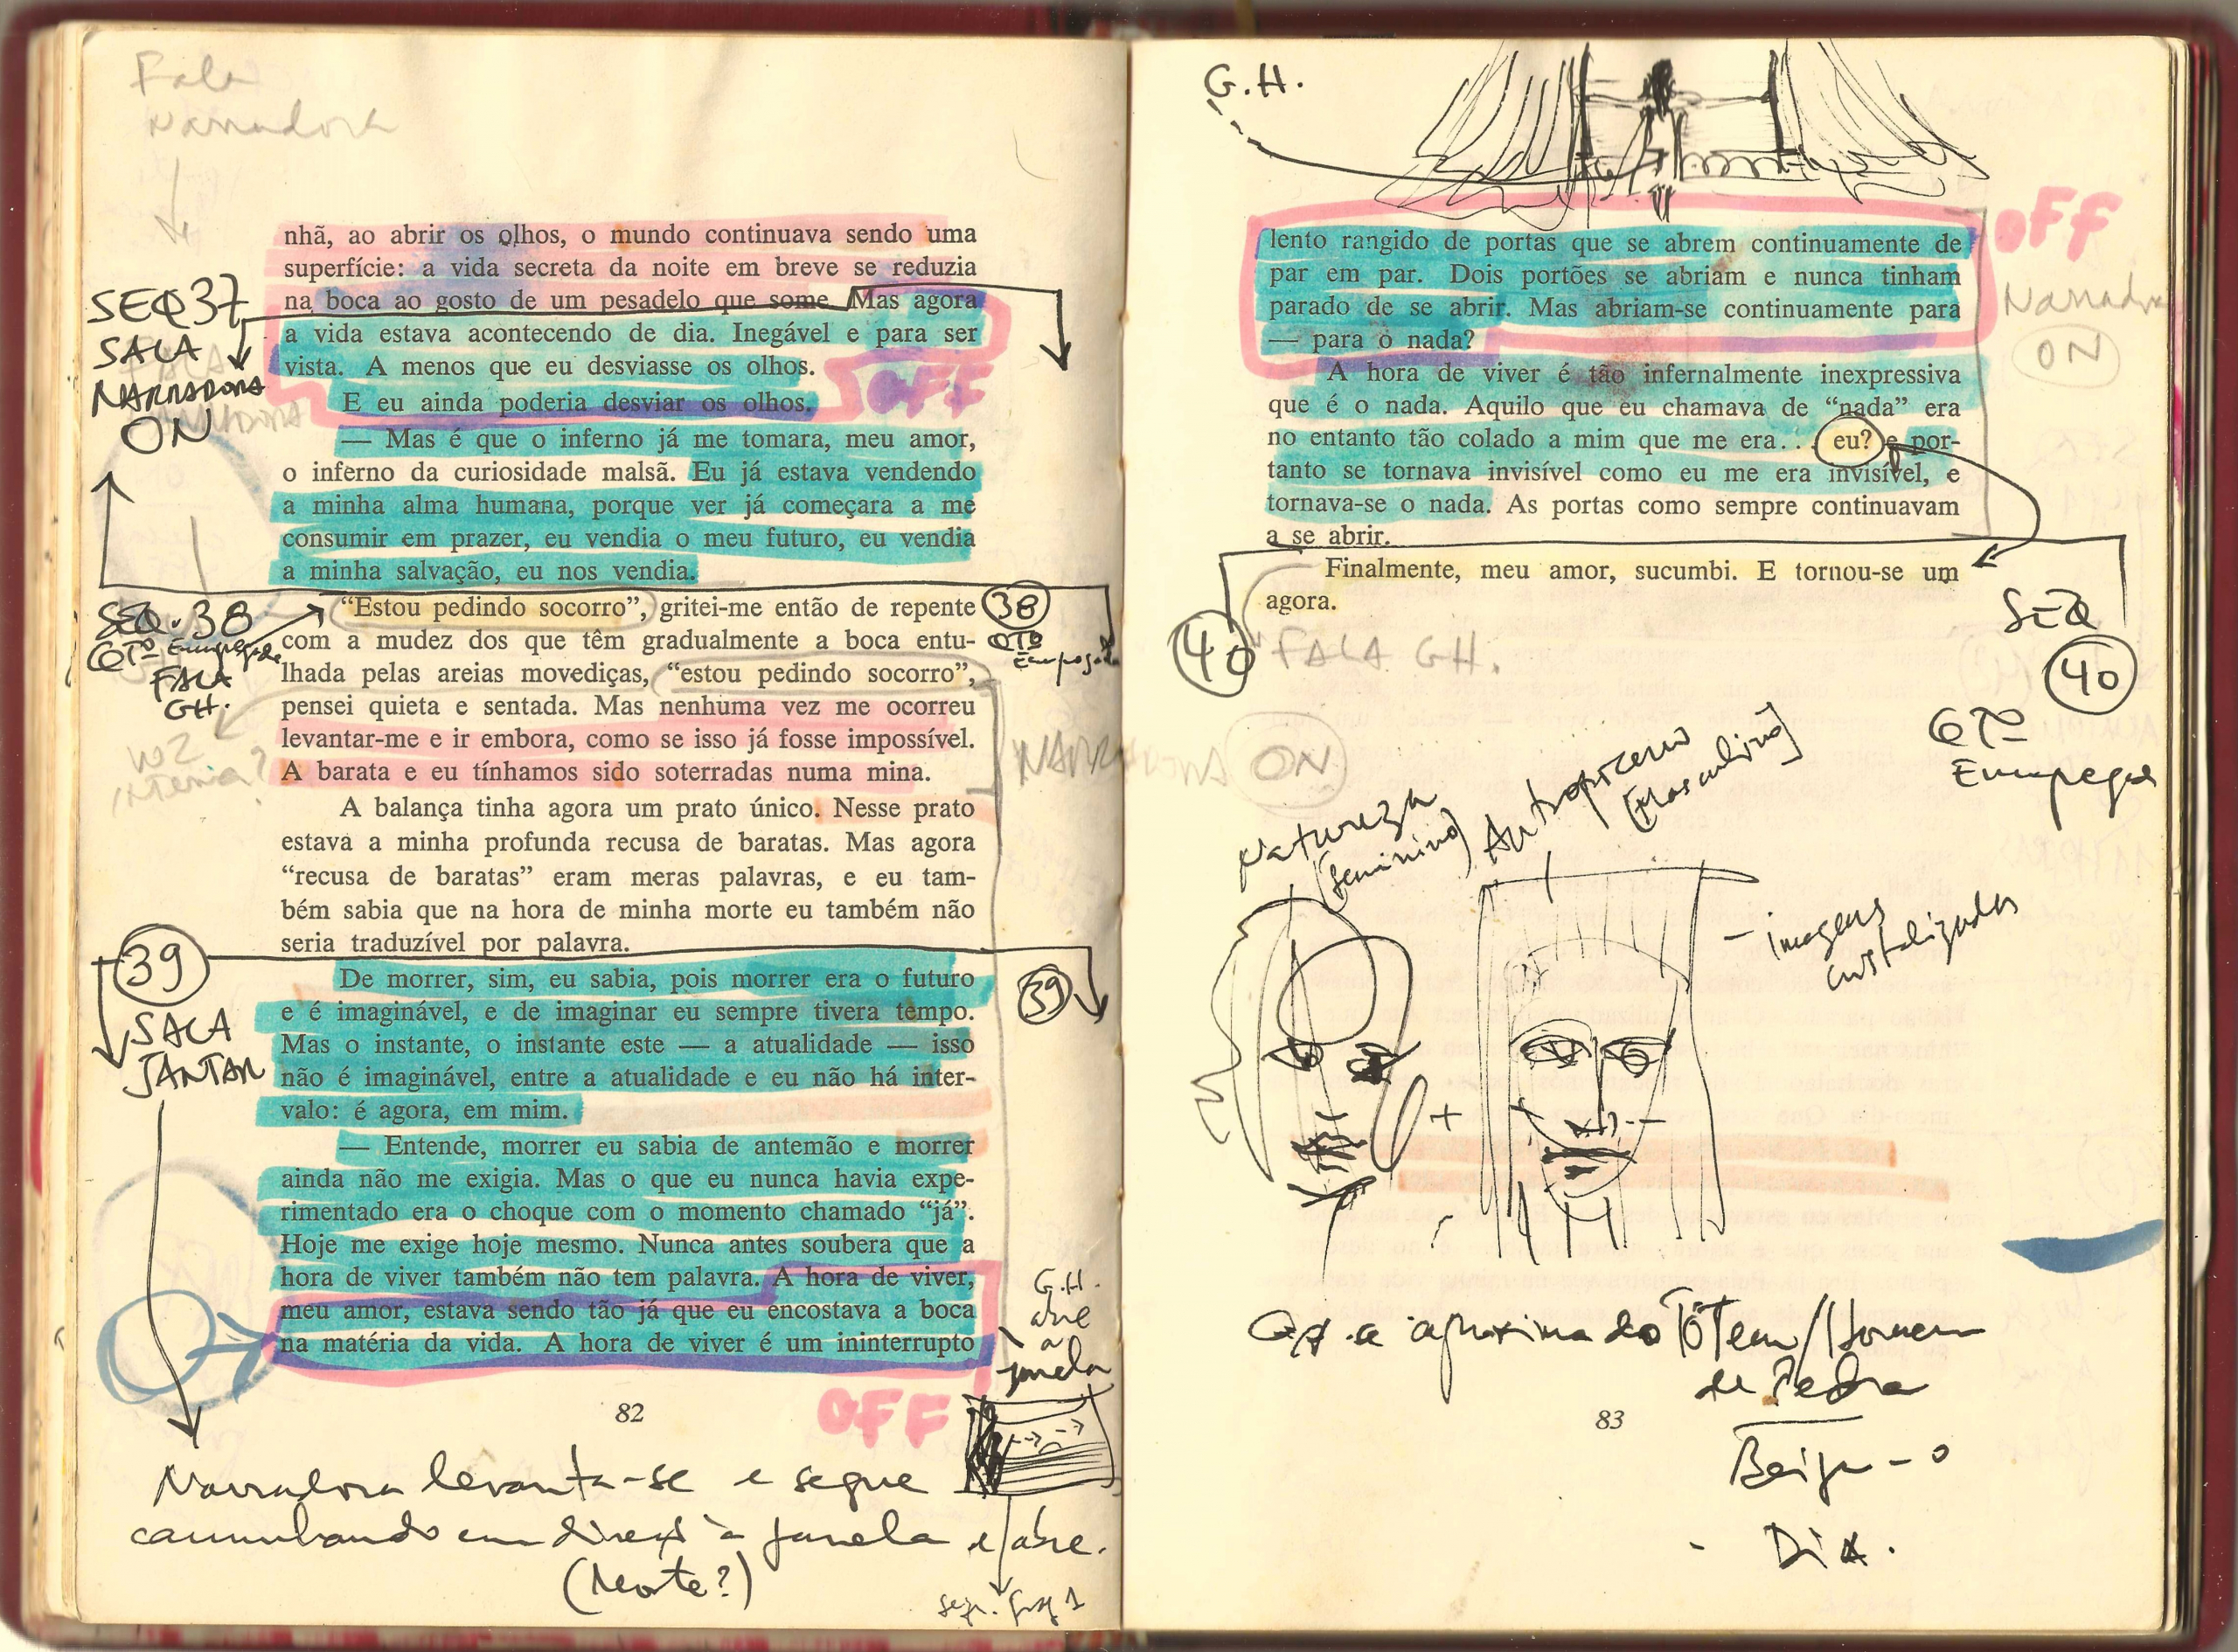 Fala
Narradora
nhã, ao abrir os olhos, o mundo continuava sendo uma
superfície: a vida secreta da noite em breve se reduzia
na boca ao gosto de um pesadelo que some. Mas agora
a vida estava acontecendo de dia. Inegável e para ser
vista. A menos que eu desviasse os olhos.
OFF
E eu ainda poderia desviar os olhos.
SEQ 37
SALA
NARRADORA
ON
— Mas é que o inferno já me tomara, meu amor,
o inferno da curiosidade malsã. Eu já estava vendendo
a minha alma humana, porque ver já começara a me
consumir em prazer, eu vendia o meu futuro, eu vendia
a minha salvação, eu nos vendia.
SEQ. 38
QTO Empregada
FALA
GH.
38
QTO
Empregada
“Estou pedindo socorro”, gritei-me então de repente
com a mudez dos que têm gradualmente a boca entu-
lhada pelas areias movediças, “estou pedindo socorro”,
pensei quieta e sentada. Mas nenhuma vez me ocorreu
levantar-me e ir embora, como se isso já fosse impossível.
A barata e eu tínhamos sido soterradas numa mina.
voz
interna?
NARRADORA ON
A balança tinha agora um prato único. Nesse prato
estava a minha profunda recusa de baratas. Mas agora
“recusa de baratas” eram meras palavras, e eu tam-
bém sabia que na hora de minha morte eu também não
seria traduzível por palavra.
39
SALA
JANTAR
39
De morrer, sim, eu sabia, pois morrer era o futuro
e é imaginável, e de imaginar eu sempre tivera tempo.
Mas o instante, o instante este — a atualidade — isso
não é imaginável, entre a atualidade e eu não há inter-
valo: é agora, em mim.
— Entende, morrer eu sabia de antemão e morrer
ainda não me exigia. Mas o que eu nunca havia expe-
rimentado era o choque com o momento chamado “já”.
Hoje me exige hoje mesmo. Nunca antes soubera que a
hora de viver também não tem palavra. A hora de viver,
meu amor, estava sendo tão já que eu encostava a boca
na matéria da vida. A hora de viver é um ininterrupto
G.H.
abre
a
janela
OFF
82
Narradora levanta-se e segue
caminhando em direção à janela e abre.
(Morte?)
G.H.
OFF
lento rangido de portas que se abrem continuamente de
par em par. Dois portões se abriam e nunca tinham
parado de se abrir. Mas abriam-se continuamente para
— para o nada?
Narradora
ON
A hora de viver é tão infernalmente inexpressiva
que é o nada. Aquilo que eu chamava de “nada” era
no entanto tão colado a mim que me era... eu? e por-
tanto se tornava invisível como eu me era invisível, e
tornava-se o nada. As portas como sempre continuavam
a se abrir.
Finalmente, meu amor, sucumbi. E tornou-se um
agora.
40
FALA GH.
SEQ
40
QTO
Empregada
Natureza
(feminino)
Antropoceno
[Masculino]
+
- imagens
cristalizadas
se aproxima do Tôtem/Homem
de Pedra
Beija-o
- Dia.
83